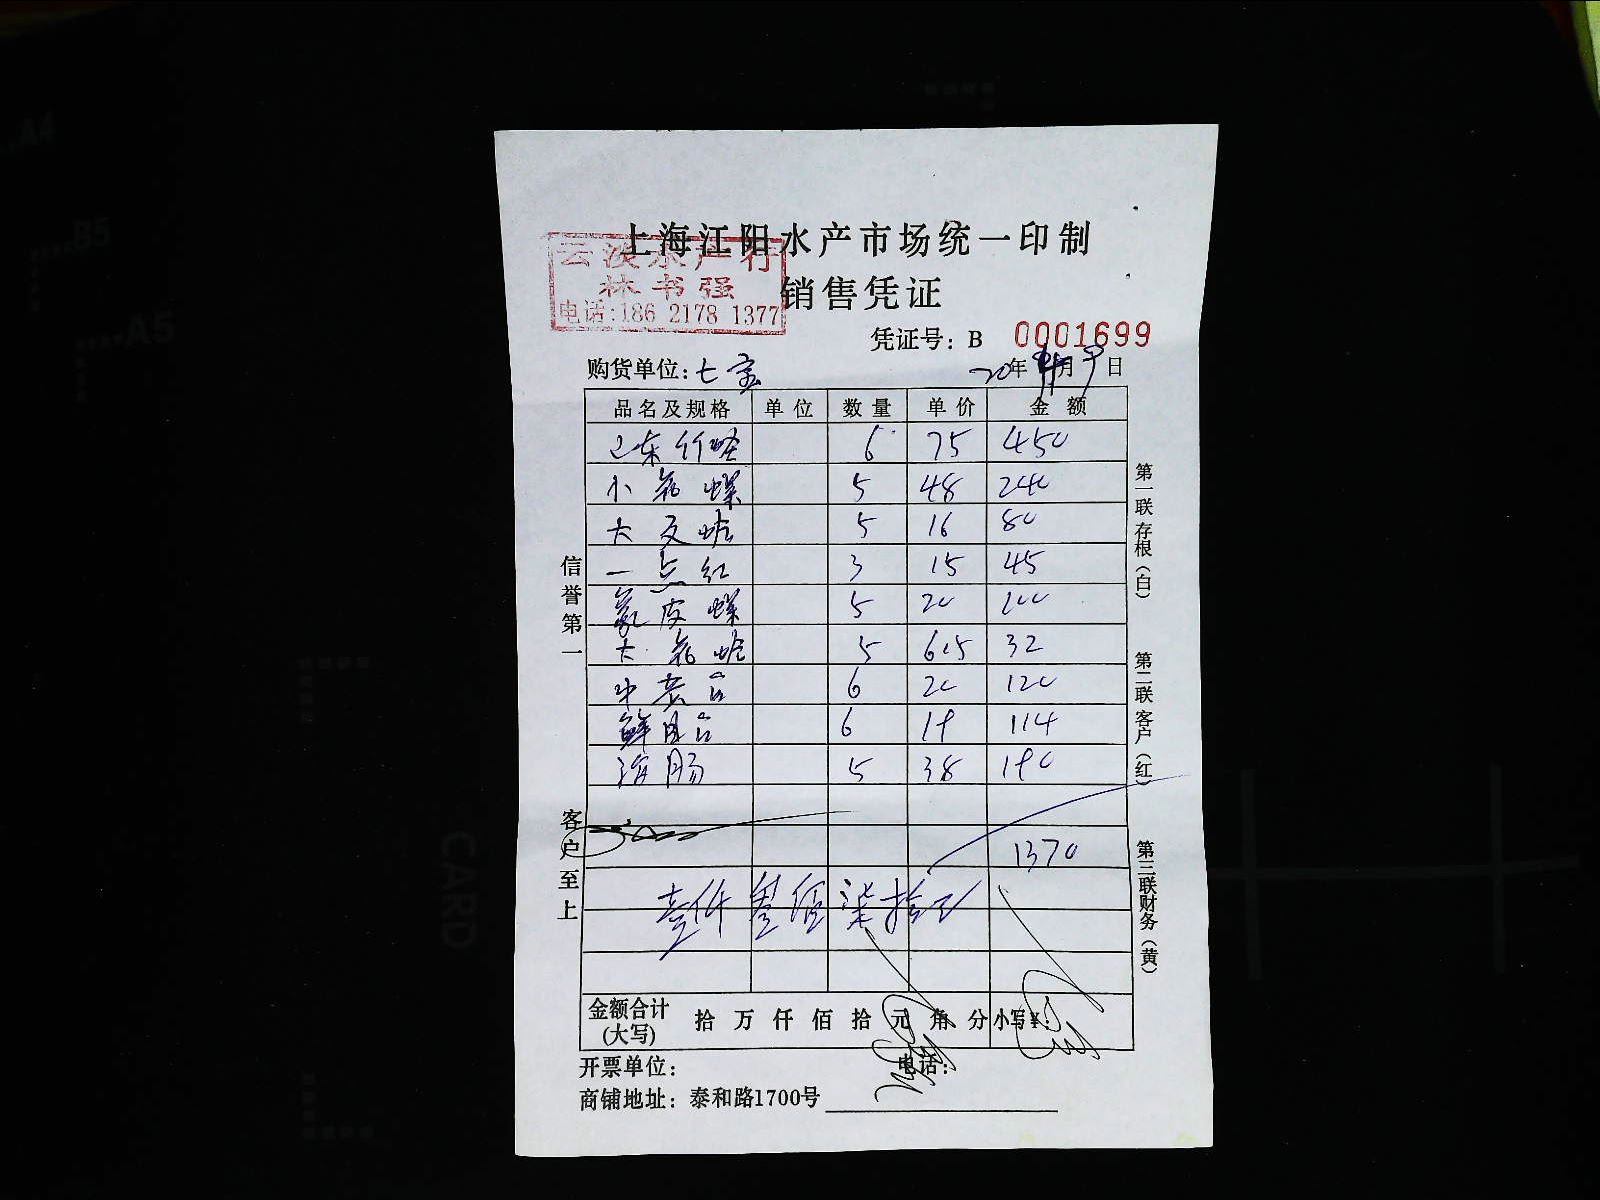 上海江阳水产市场统一印制
云淡水产行
林书强
电话:186 2178 1377
销售凭证
凭证号: B 0001699
购货单位: 七宝 20年 月9日
品名及规格 单位 数量 单价 金额
山东竹蛏 6 75 450
小花螺 5 48 240
大文蛤 5 16 80
一点红 3 15 45
象皮螺 5 20 100
大花蛤 5 6.5 32
中贡台 6 20 120
鲜 6 19 114
海肠 5 38 190
1370
壹仟叁佰柒拾正
金额合计(大写) 拾 万 仟 佰 拾 元 角 分 小写¥:
开票单位: 电话:
商铺地址: 泰和路1700号
信誉第一
客户至上
第一联 存根(白)
第二联 客户(红)
第三联 财务(黄)
A4
B5
A5
CARD